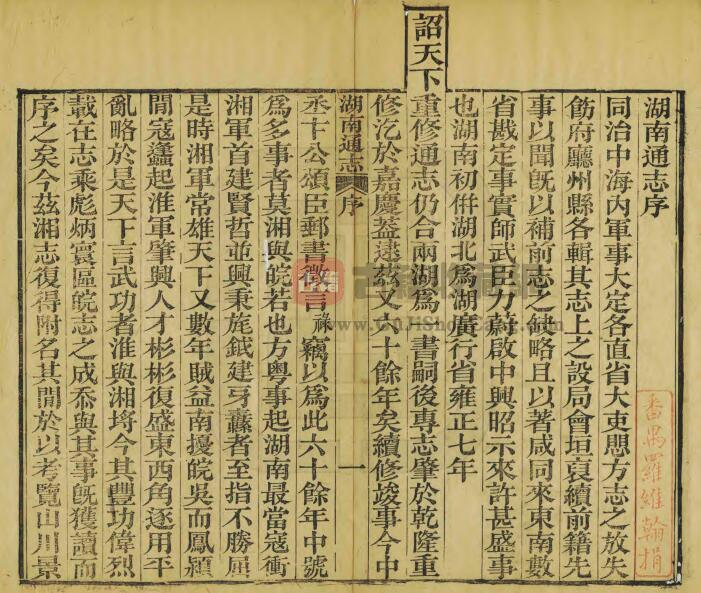 湖南通志序
同治中海內軍事大定各直省大吏思方志之放失
飭府廳州縣各輯其志上之設局會垣裒續前籍先
事以聞旣以補前志之缺略且以著咸同來東南數
省戡定事實師武臣力蔚啟中興昭示來許甚盛事
也湖南初併湖北爲湖廣行省雍正七年
詔天下重修通志仍合兩湖爲一書嗣後專志肇於乾隆重
修汔於嘉慶葢逮茲又六十餘年矣續修竣事今中
湖南通志 序 一
丞卞公頌臣郵書徵言祿竊以爲此六十餘年中號
爲多事者莫湘與皖若也方粵事起湖南最當寇衝
湘軍首建賢哲並興秉旄鉞建牙纛者至指不勝屈
是時湘軍常雄天下又數年賊益南擾皖吳而鳳潁
閒寇蠭起淮軍肇興人才彬彬復盛東西角逐用平
亂略於是天下言武功者淮與湘埒今其豐功偉烈
載在志乘彪炳寰區皖志之成忝與其事旣獲讀而
序之矣今茲湘志復得附名其閒於以考覽山川景
番禺羅維翰捐